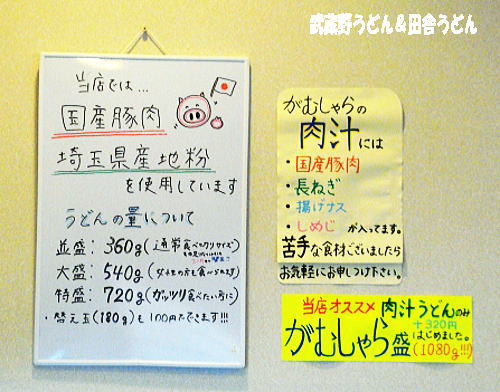 武蔵野うどん＆田舎うどん
当店では…
国産豚肉
埼玉県産地粉
を使用しています
うどんの量について
並盛：360g(通常食べ切りサイズ)
大盛：540g(女子の方も食べられます)
特盛：720g(ガッツリ食べたい方に)
・替え玉(180g)も100円でできます!!!
がむしゃらの
肉汁には
・国産豚肉
・長ねぎ
・揚げナス
・しめじ が入ってます。
苦手な食材ございましたら
お気軽にお申しつけ下さい。
当店オススメ 肉汁うどんのみ
+320円
はじめました。
がむしゃら盛(1080g!!!)